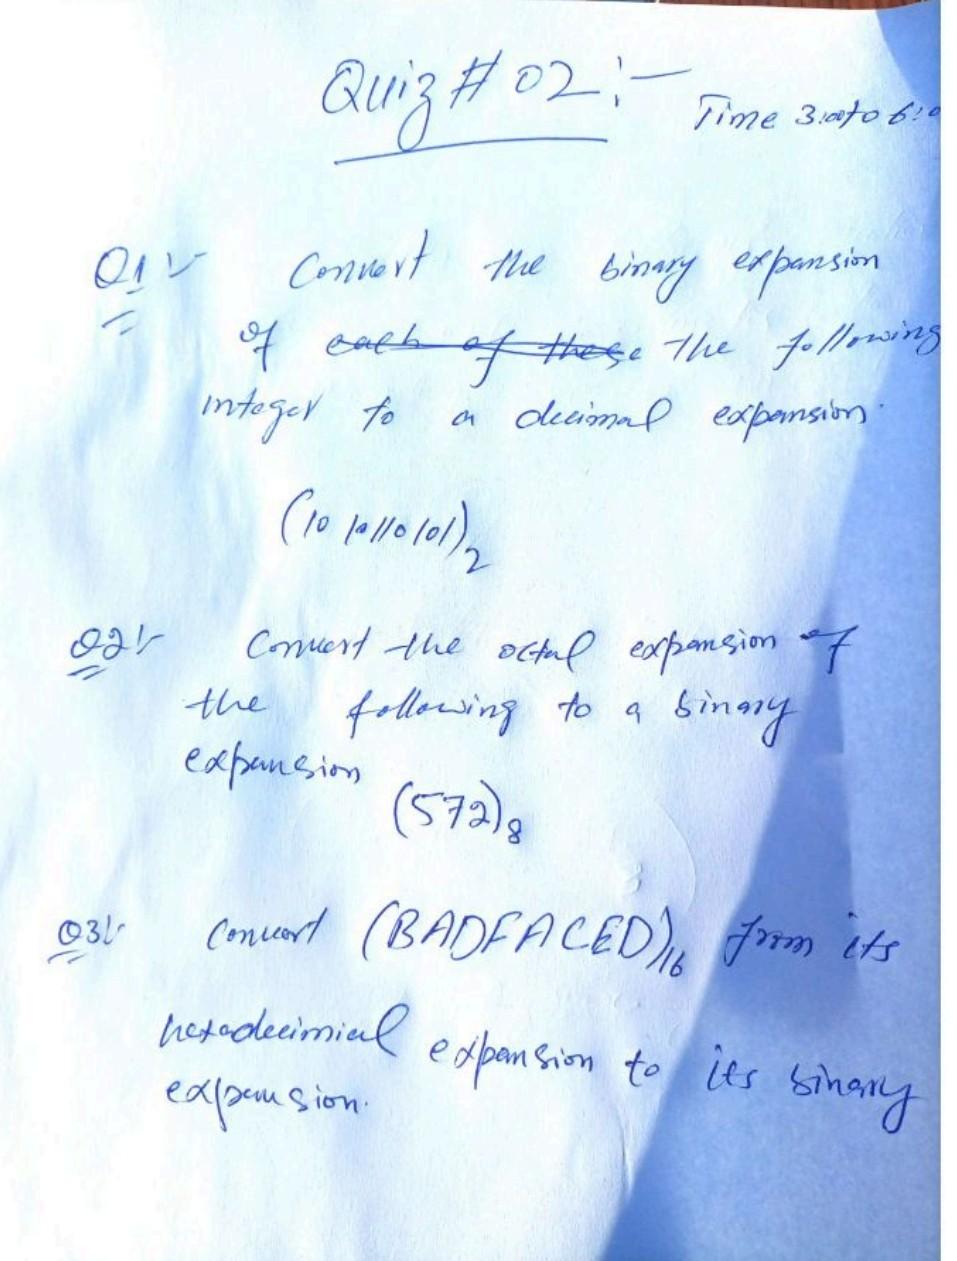 Quiz # 02:-
Time 3:00 to 6:0
Q1:- Convert the binary expansion
of each of these the following
integer to a decimal expansion.
(10 10110101)₂
Q2:- Convert the octal expansion of
the following to a binary
expansion
(572)₈
Q3:- Convert (BADFACED)₁₆ from its
hexadecimial expansion to its binary
expansion.